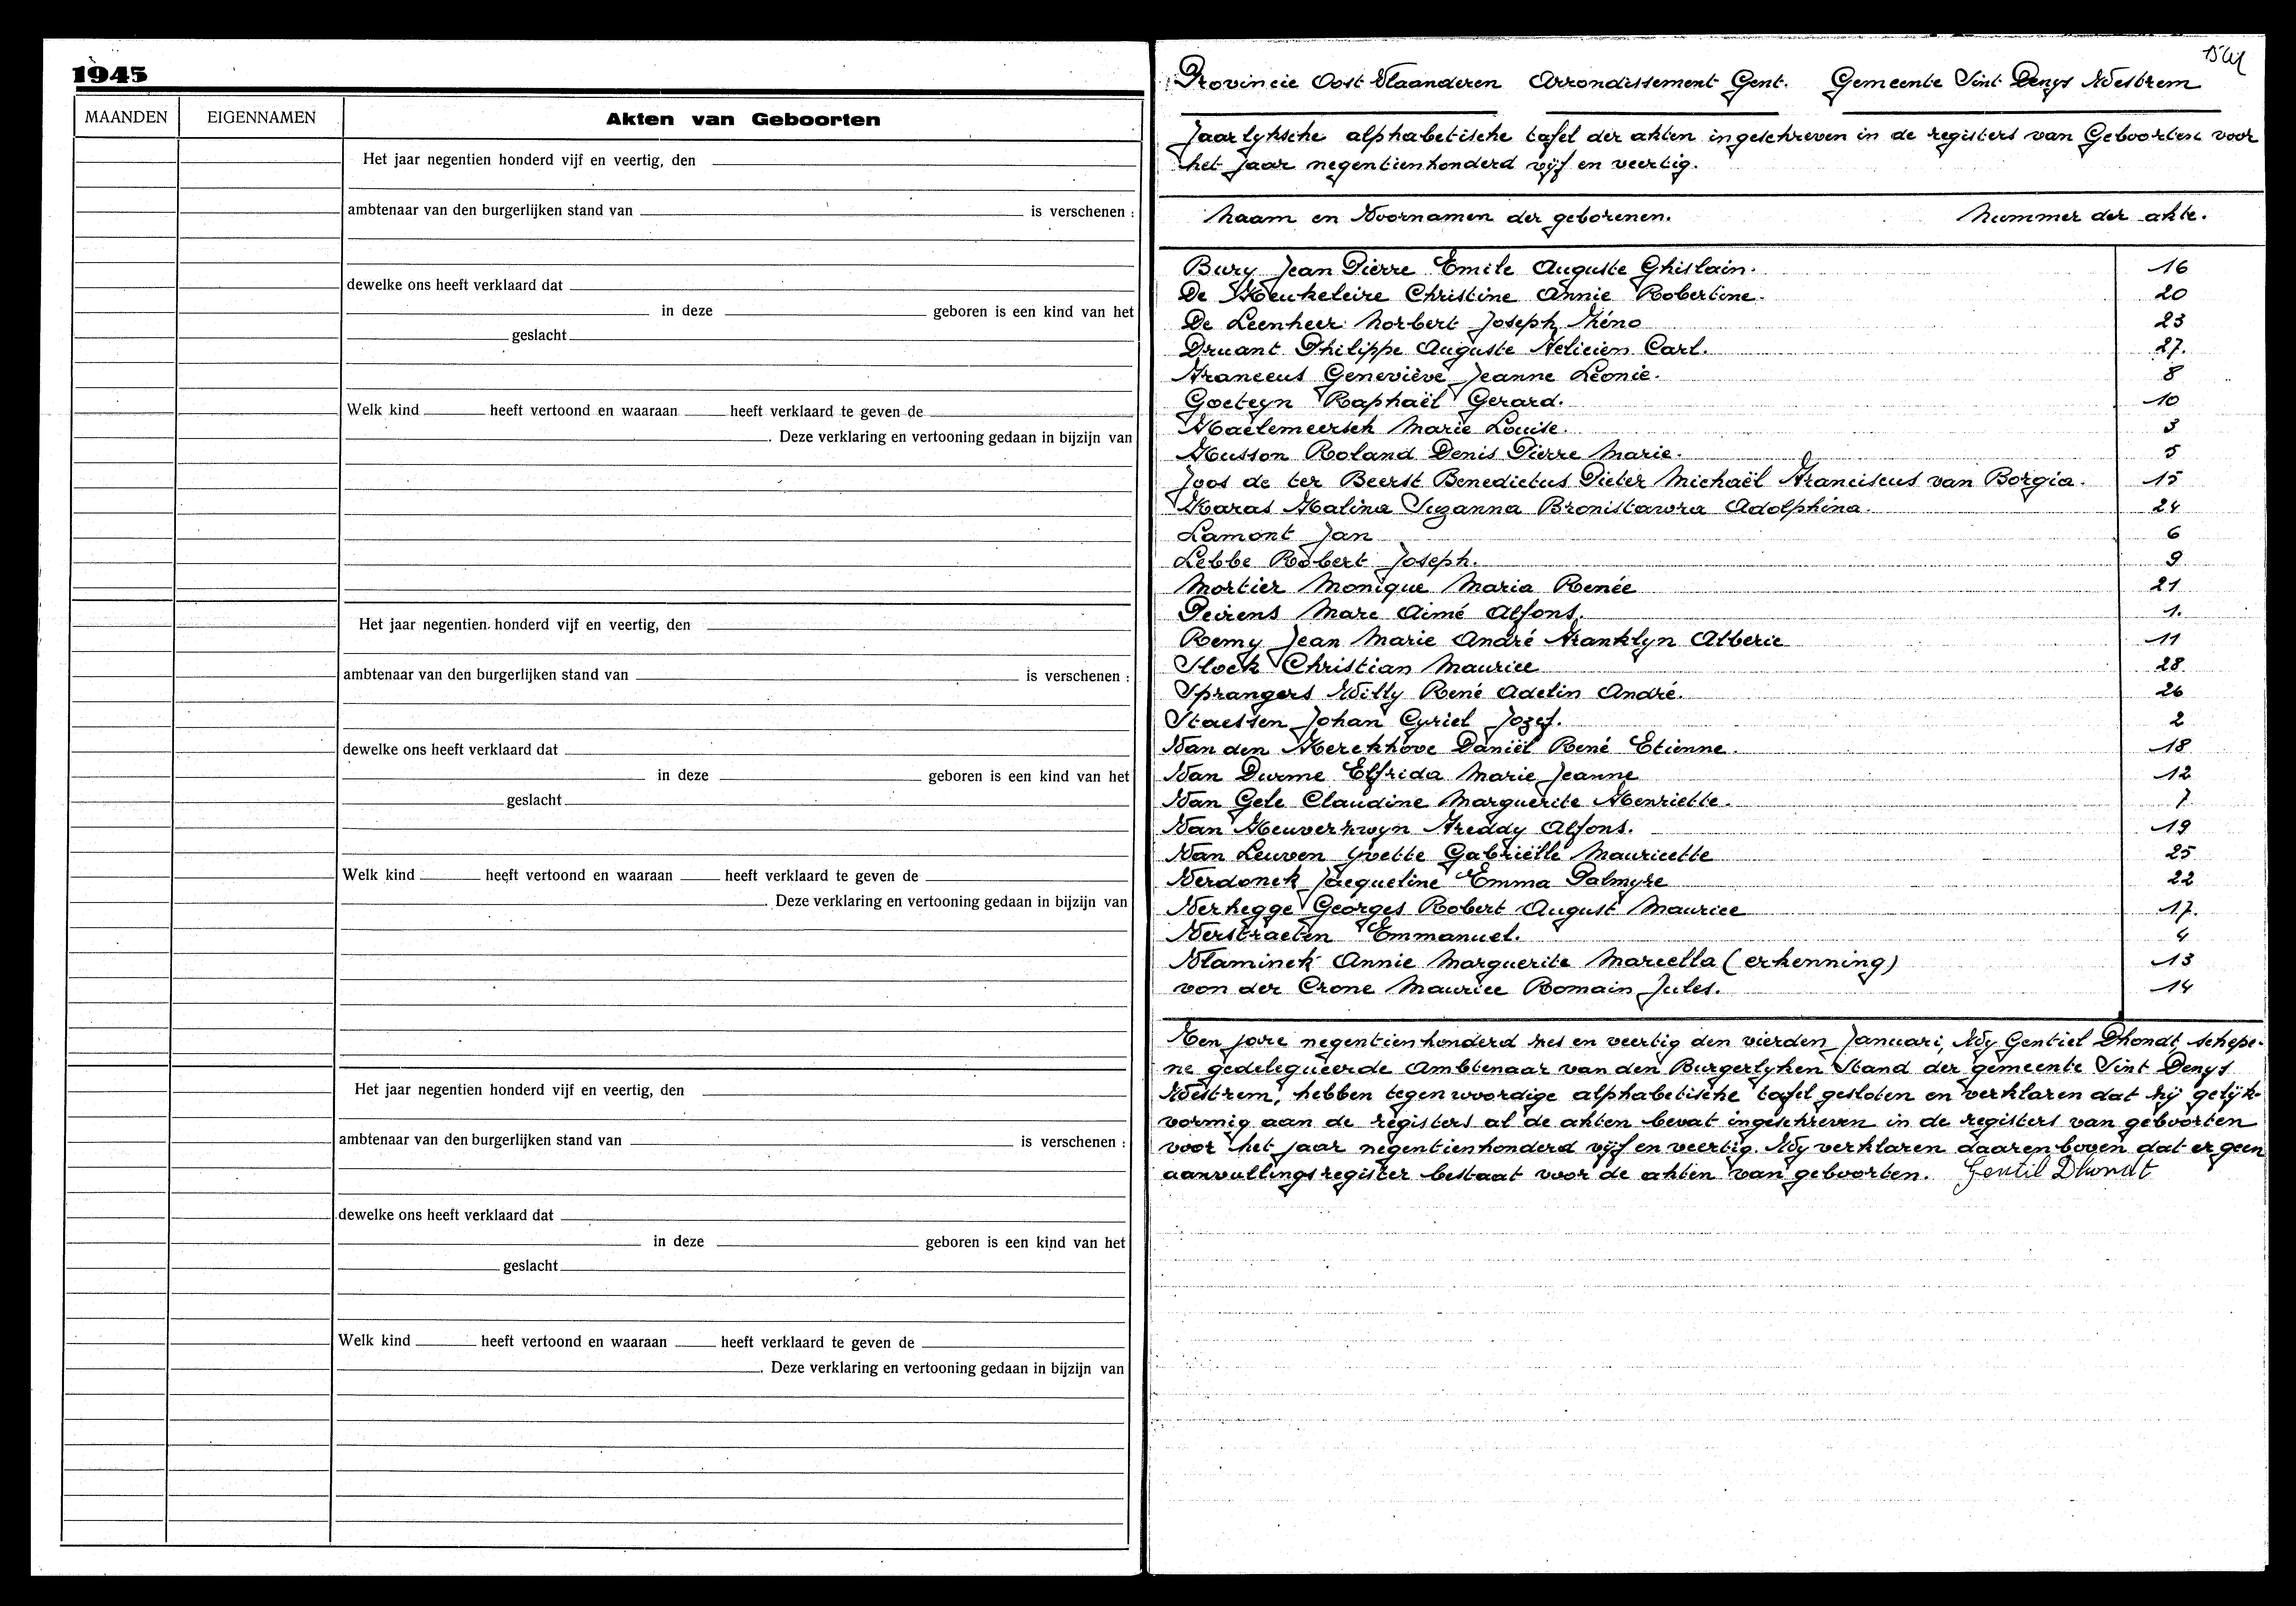 1945
MAANDEN EIGENNAMEN Akten van Geboorten
Het jaar negentien honderd vijf en veertig, den
ambtenaar van den burgerlijken stand van is verschenen :
dewelke ons heeft verklaard dat
in deze geboren is een kind van het
geslacht
Welk kind heeft vertoond en waaraan heeft verklaard te geven de
. Deze verklaring en vertooning gedaan in bijzijn van
Het jaar negentien honderd vijf en veertig, den
ambtenaar van den burgerlijken stand van is verschenen :
dewelke ons heeft verklaard dat
in deze geboren is een kind van het
geslacht
Welk kind heeft vertoond en waaraan heeft verklaard te geven de
. Deze verklaring en vertooning gedaan in bijzijn van
Het jaar negentien honderd vijf en veertig, den
ambtenaar van den burgerlijken stand van is verschenen :
dewelke ons heeft verklaard dat
in deze geboren is een kind van het
geslacht
Welk kind heeft vertoond en waaraan heeft verklaard te geven de
. Deze verklaring en vertooning gedaan in bijzijn van
Provincie Oost Vlaanderen Arrondissement Gent. Gemeente Sint Denys Westrem
Jaarlyksche alphabetische tafel der akten ingeschreven in de registers van Geboorten voor
het jaar negentienhonderd vijf en veertig.
Naam en Voornamen der geborenen. Nummer der akte.
Bury Jean Pierre Emile Auguste Ghislain. 16
De Keukeleire Christine Annie Robertine. 20
De Leenheer Norbert Joseph Kéno 23
Druant Philippe Auguste Felicien Carl. 27.
Franceus Geneviève Jeanne Léonie. 8
Goeteyn Raphaël Gerard. 10
Haelemeersch Marie Louise. 3
Husson Roland Denis Pierre Marie. 5
Joos de ter Beerst Benedictus Pieter Michaël Franciscus van Borgia. 15
Karas Halina Suzanna Bronistawra Adolphina. 24
Lamont Jan 6
Lebbe Robert Joseph. 9
Mortier Monique Maria Renée 21
Peirens Marc Aimé Alfons. 1.
Remy Jean Marie André Franklyn Alberic 11
Slock Christian Maurice 28.
Sprangers Willy René Adelin André. 26
Staessen Johan Cyriel Jozef. 2
Van den Kerckhove Daniël René Etienne. 18
Van Durme Elfrida Marie Jeanne 12
Van Gele Claudine Marguerite Henriette. 7
Van Heuverzwyn Freddy Alfons. 19
Van Leuven Yvette Gabrielle Mauricette 25
Verdonck Jacqueline Emma Palmyre 22
Verhegge Georges Robert August Maurice 17.
Verstraeten Emmanuel. 4
Vlaminck Annie Marguerite Marcella (erkenning) 13
von der Crone Maurice Romain Jules. 14
Ten jare negentienhonderd zes en veertig den vierden Januari, Wy Gentiel Dhondt schepe-
ne gedelegueerde Ambtenaar van den Burgerlyken Stand der gemeente Sint Denys
Westrem, hebben tegenwoordige alphabetische tafel gesloten en verklaren dat hij gelijk-
vormig aan de registers al de akten bevat ingeschreven in de registers van geboorten
voor het jaar negentienhonderd vijf en veertig. Wy verklaren daarenboven dat er geen
aanvullingsregister bestaat voor de akten van geboorten. Gentil Dhondt